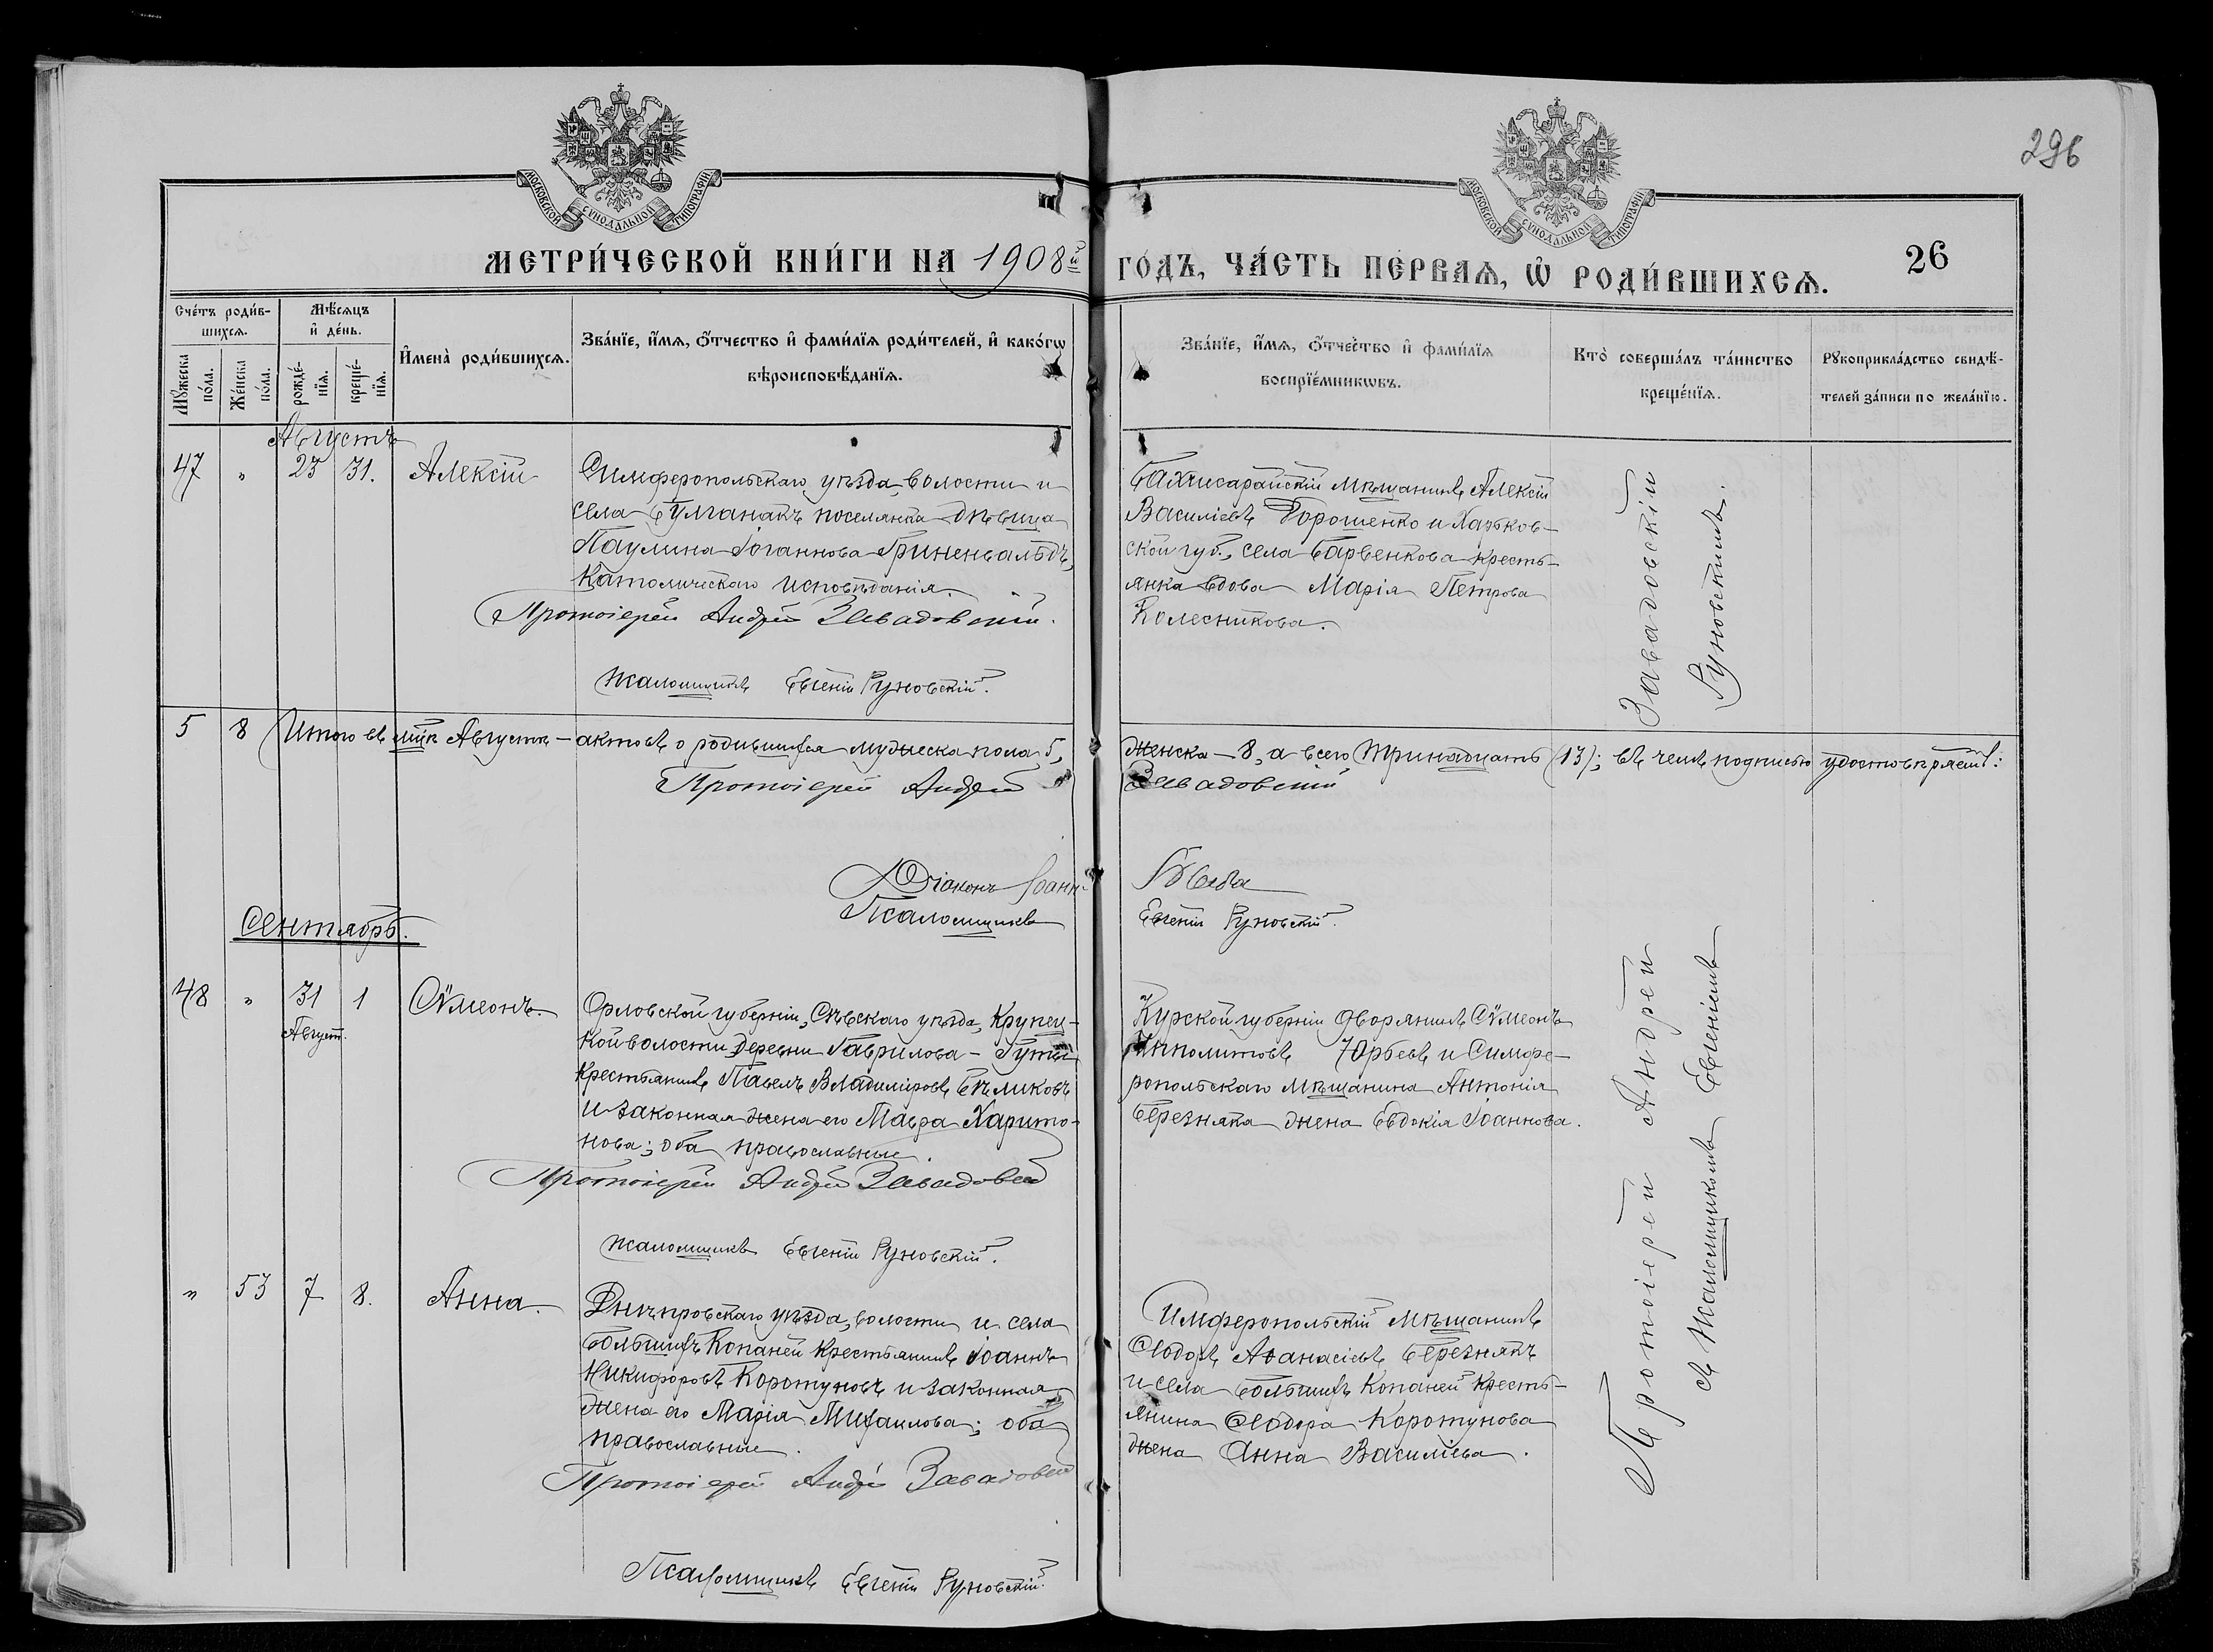 296
МОСКОВСКОЙ СѴНОДАЛЬНОЙ ТИПОГРАФІИ
МОСКОВСКОЙ СѴНОДАЛЬНОЙ ТИПОГРАФІИ
МЕТРИ́ЧЕСКОЙ КНИ́ГИ НА 1908й
ГО́ДЪ, ЧА́СТЬ ПЕ́РВАѦ, Ѡ РОДИ́ВШИХСѦ.
26
Сче́тъ роди́в-
шихсѧ.
Мꙋ́жеска по́ла.
Же́нска по́ла.
Мѣ́сѧцъ
и҆ де́нь.
рожде́-нїѧ.
креще́-нїѧ.
И҆мена̀ роди́вшихсѧ.
Зва́нїе, и҆́мѧ, ѻ҆́тчество и҆ фами́лїѧ роди́телей, и҆ како́гѡ
вѣроисповѣ́данїѧ.
Зва́нїе, и҆́мѧ, ѻ҆́тчество и҆ фами́лїѧ
воспрїе́мникѡвъ.
Кто̀ соверша́лъ та́инство
креще́нїѧ.
Рꙋкоприкла́дство свидѣ́-
телей за́писи по жела́нїю.
Августъ
47 " 23 31. Алексій
Симферопольскаго уѣзда, волости и
села Булганакъ поселянка дѣвица
Паулина Іоганнова Гриненвальдъ,
католическаго исповѣданія.
Протоіерей Андрей Завадовскій.
Псаломщикъ Евгеній Руновскій.
Бахчисарайскій мѣщанинъ Алексій
Василіевъ Дорошенко и Харьков-
ской губ., села Барвенкова кресть-
янка вдова Марія Петрова
Колесникова.
Завадовскій
Руновскимъ.
5 8 Итого въ мцѣ Августѣ - актовъ о родившихся мужеска пола 5,
женска - 8, а всего тринадцать (13); въ чемъ подписью удостовѣряемъ:
Протоіерей Андрей Завадовскій
Діаконъ Іоанн
Псаломщикъ Евгеній Руновскій.
Сентябрь.
48 " 31 1 Сѵмеонъ.
Август.
Орловской губерніи, Сѣвскаго уѣзда, Крупец-
кой волости, деревни Гаврилова - Гуты
крестьянинъ Павелъ Владиміровъ Бѣликовъ
и законная жена его Мавра Харито-
нова; оба православные.
Протоіерей Андрей Завадовскій
Псаломщикъ Евгеній Руновскій.
Курской губерніи дворянинъ Сѵмеонъ
Ипполитовъ Юрьевъ и Симфе-
ропольскаго мѣщанина Антонія
Березняка жена Евдокія Іоаннова.
Протоіерей Андрей
съ Псаломщикомъ Евгеніемъ
" 53 7 8. Анна.
Днѣпровскаго уѣзда, волости и села
Большихъ Копаней крестьянинъ Іоаннъ
Никифоровъ Коротуновъ и законная
жена его Марія Михаилова; оба
православные.
Протоіерей Андрей Завадовскій
Псаломщикъ Евгеній Руновскій.
Симферопольскій мѣщанинъ
Ѳеодоръ Аѳанасіевъ Березнякъ
и села Большихъ Копаней кресть-
янина Ѳеодора Коротунова
жена Анна Василіева.